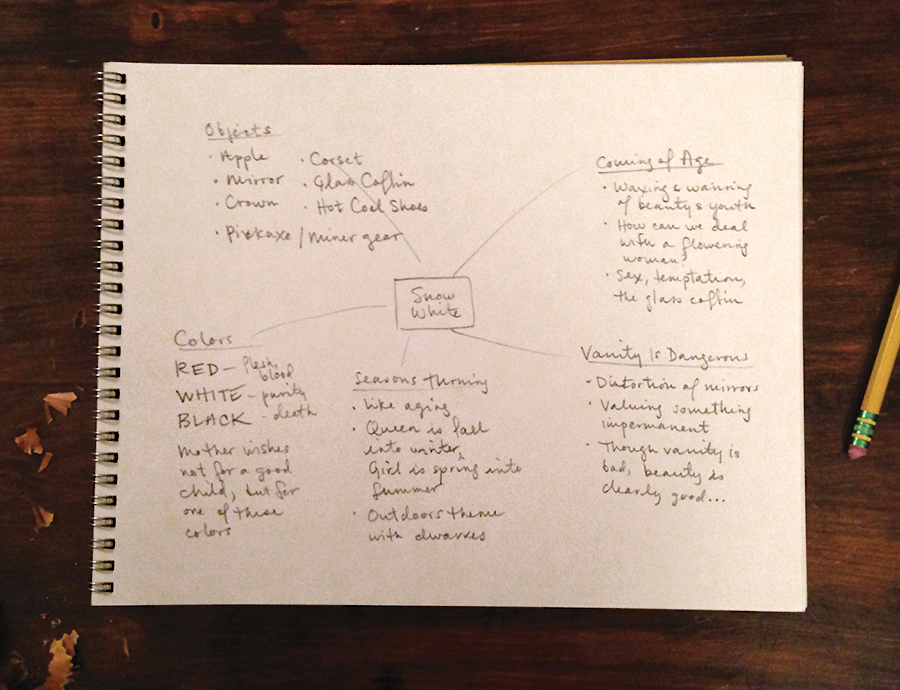 Objects
· Apple
· Mirror
· Crown
· Pickaxe / miner gear
· Corset
· Glass Coffin
· Hot Coal Shoes
Coming of Age
· Waxing & wainning
of beauty & youth
· How can we deal
with a flowering
woman?
· Sex, temptation,
the glass coffin
Snow
White
Colors
RED – flesh, blood
WHITE – purity
BLACK – death
Mother wishes
not for a good
child, but for
one of these
colors
Seasons turning
· Like aging
· Queen is fall
into winter,
Girl is spring into
summer
· Outdoors theme
with dwarves
Vanity Is Dangerous
· Distortion of mirrors
· Valuing something
impermanent
· Though vanity is
bad, beauty is
clearly good...